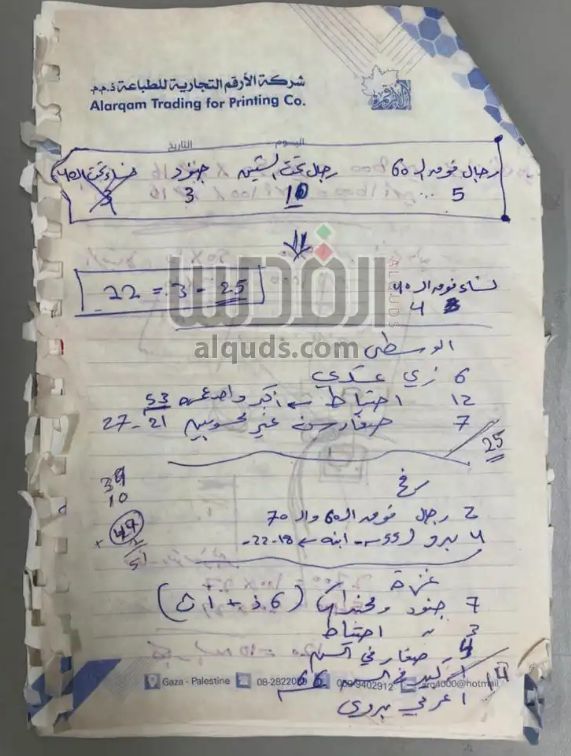 شركة الأرقم التجارية للطباعة ذ.م.م
Alarqam Trading for Printing Co.
اليوم التاريخ
رجال فوق الـ 60 رجال تحت الستين جنود نساء تحت الـ 40
5 10 3 3
نساء فوق الـ 40
4
25 - 3 = 22
القدس
ALQUDS
alquds.com
الوسطى
6 زي عسكري
12 احتياط ← أكبر واحد عمره 53
7 صغار سن غير محسوبين 21-27
25
رفح
2 رجال فوق الـ 60 والـ 70
4 بدو ← ابنه 18-22-
39
10
47
+ 2
51
غزة
7 جنود ومجندات (6 ذ + 1 ث)
3 " احتياط
4 صغار في السن
1 كبير في السن
1 عربي بدوي
14
Gaza - Palestine 08-2822